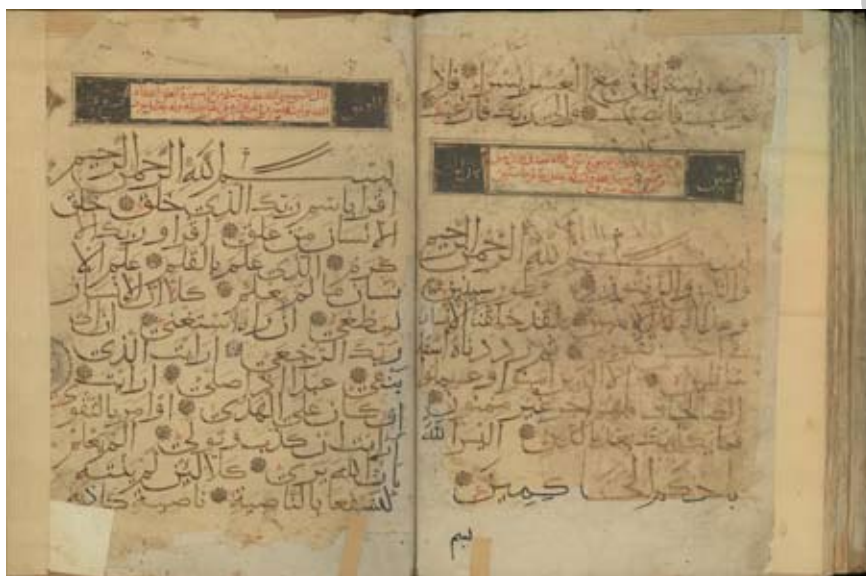 العسر يسرا ان مع العسر يسرا فاذا
فرغت فانصب والى ربك فارغب
والتين
بسم الله الرحمن الرحيم
والتين والزيتون وطور سينين
وهذا البلد الامين لقد خلقنا الانسان
في احسن تقويم ثم رددناه اسفل
سافلين الا الذين امنوا وعملوا
الصالحات فلهم اجر غير ممنون
فما يكذبك بعد بالدين اليس الله
باحكم الحاكمين
بسم
بسم الله الرحمن الرحيم
اقرا باسم ربك الذي خلق خلق
الانسان من علق اقرا وربك الا
كرم الذي علم بالقلم علم الا
نسان ما لم يعلم كلا ان الانسان
ليطغى ان راه استغنى ان الى
ربك الرجعى ارايت الذي
ينهى عبدا اذا صلى ارايت
ان كان على الهدى او امر بالتقوى
ارايت ان كذب وتولى الم يعلم
بان الله يرى كلا لئن لم ينته
لنسفعا بالناصية ناصية كاذبة